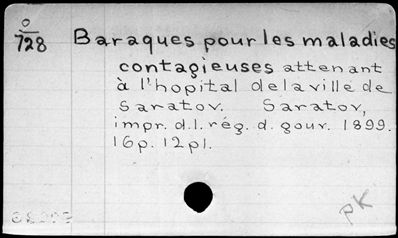 O
728
Baraques pour les maladies
contagieuses attenant
à l'hopital de la ville de
Saratov. Saratov,
impr. d.l. rég. d. gouv. 1899.
16p. 12pl.
PK